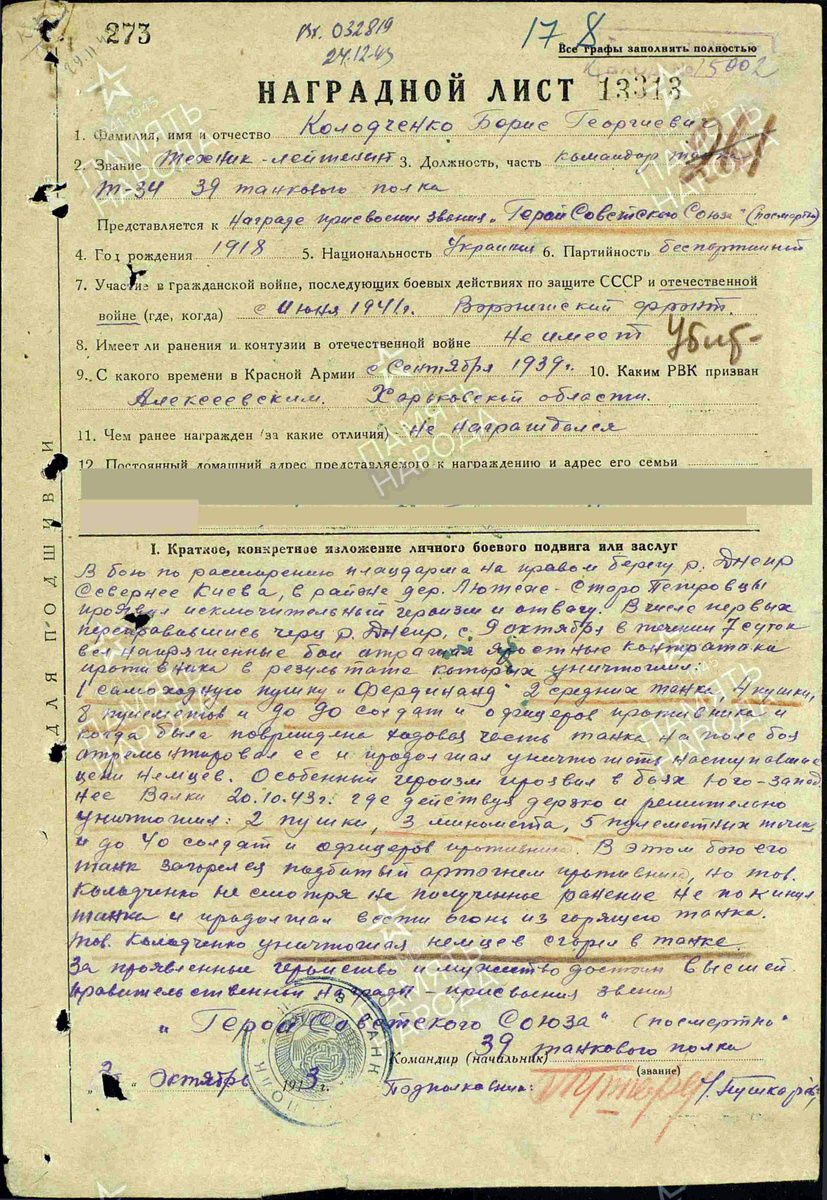 273
Вх. 032819
24.12.43
178
Все графы заполнять полностью
15002
НАГРАДНОЙ ЛИСТ 13313
1. Фамилия, имя и отчество Колодченко Борис Георгиевич
2. Звание техник-лейтенант 3. Должность, часть командир танка
Т-34 39 танкового полка
Представляется к награде присвоения звания „Герой Советского Союза" (посмертно)
4. Год рождения 1918 5. Национальность Украинец 6. Партийность беспартийный
7. Участие в гражданской войне, последующих боевых действиях по защите СССР и отечественной
войне (где, когда) с Июня 1941г. Воронежский фронт.
8. Имеет ли ранения и контузии в отечественной войне Не имеет Убит-
9. С какого времени в Красной Армии с Сентября 1939г. 10. Каким РВК призван
Алексеевским. Харьковской области.
11. Чем ранее награжден (за какие отличия) не награждался
12. Постоянный домашний адрес представляемого к награждению и адрес его семьи
ДЛЯ ПОДШИВКИ
I. Краткое, конкретное изложение личного боевого подвига или заслуг
В бою по расширению плацдарма на правом берегу р. Днепр
Севернее Киева, в районе дер. Лютеж-Старо Петровцы
проявил исключительный героизм и отвагу. В числе первых
переправившись через р. Днепр, с 9 октября в течении 7 суток
вел напряженные бои отражая яростные контратаки
противника в результате которых уничтожил:
1 самоходную пушку „Фердинанд" 2 средних танка, 4 пушки,
8 пулеметов и до солдат и офицеров противника и
когда была повреждена ходовая часть танка на поле боя
отремонтировал ее и продолжал уничтожать наступавшие
цепи немцев. Особенный героизм проявил в боях Юго-запад
нее Валки 20.10.43г. где действуя дерзко и решительно
уничтожил: 2 пушки, 3 миномета, 5 пулеметных точек
и до 40 солдат и офицеров противника. В этом бою его
танк загорелся подбитый артогнем противника, но тов.
Колодченко не смотря на полученное ранение не покинул
танка и продолжал вести огонь из горящего танка.
тов. Колодченко уничтожая немцев сгорел в танке.
За проявленные геройство и мужество достоин высшей
правительственной награды присвоения звания
„Герой Советского Союза" (посмертно)
39 танкового полка
Командир (начальник)
(звание)
Октябрь 1943г.
Подполковник: /Пушкарев/